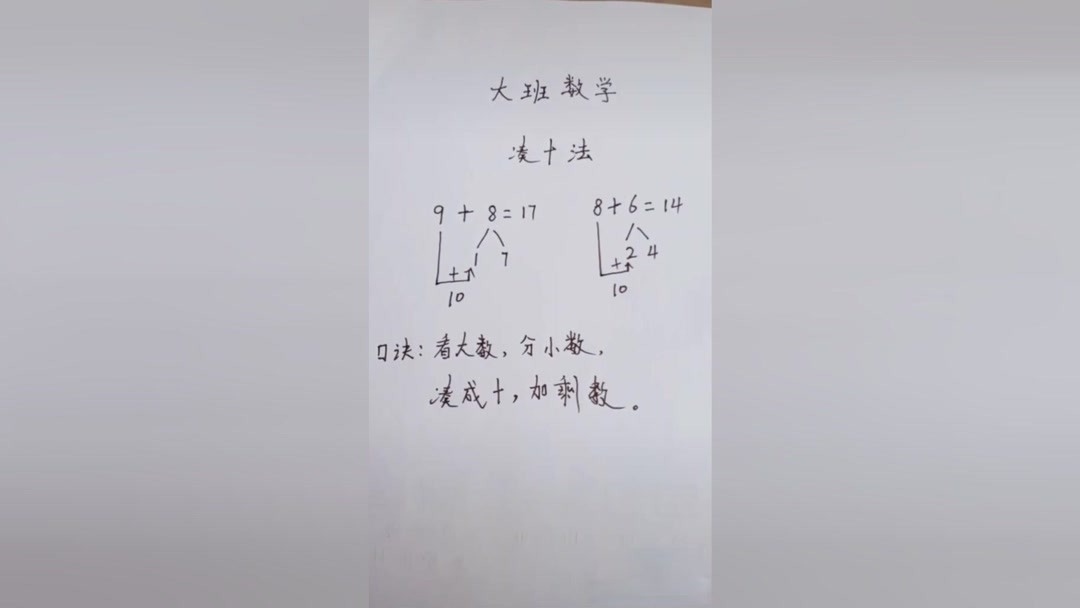 大班数学
凑十法
9 + 8 = 17    8 + 6 = 14
1 7    2 4
+    +
10    10
口诀：看大数，分小数，
凑成十，加剩数。